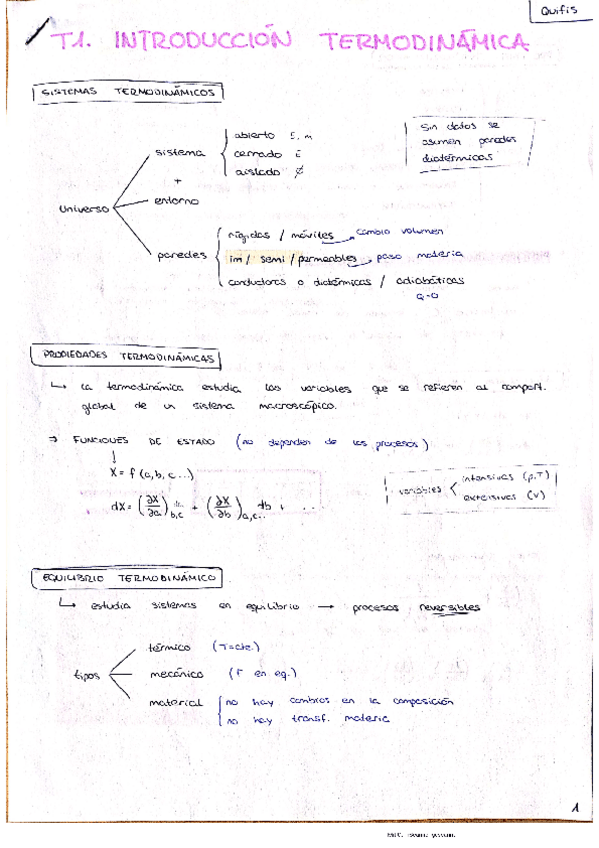 Quifis
T1. INTRODUCCIÓN TERMODINÁMICA
SISTEMAS TERMODINÁMICOS
Sin datos se
asumen paredes
diatérmicas
Universo
sistema
abierto E, m
cerrado E
aislado ∅
+
entorno
paredes
rígidas / móviles → cambio volumen
im / semi / permeables → paso materia
conductoras o diatérmicas / adiabáticas
Q=0
PROPIEDADES TERMODINÁMICAS
↳ La termodinámica estudia las variables que se refieren al comport.
global de un sistema macroscópico.
⇒ FUNCIONES DE ESTADO (no dependen de los procesos)
↓
X = f (a, b, c ...)
dX = (∂X/∂a)b,c da + (∂X/∂b)a,c.. db + ...
variables < intensivas (p, T)
extensivas (V)
EQUILIBRIO TERMODINÁMICO
↳ estudia sistemas en equilibrio → procesos reversibles
tipos
térmico (T=cte.)
mecánico (F en eq.)
material
no hay cambios en la composición
no hay transf. materia
1